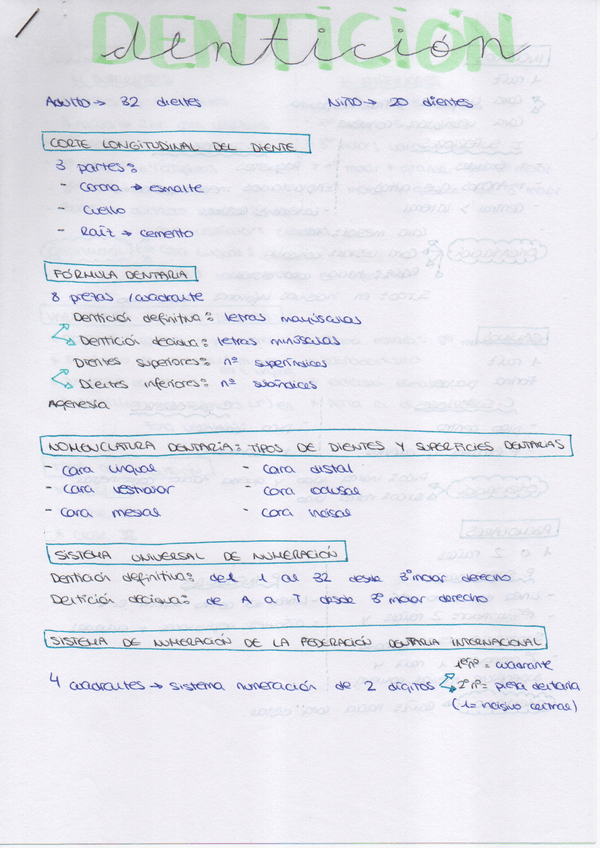 DENTICIÓN
dentición
Adulto → 32 dientes
Niño → 20 dientes
CORTE LONGITUDINAL DEL DIENTE
3 partes:
- Corona → esmalte
- Cuello
- Raíz → cemento
FÓRMULA DENTARIA
8 piezas / cuadrante
Dentición definitiva: letras mayúsculas
Dentición decidua: letras minúsculas
Dientes superiores: nº superíndices
Dientes inferiores: nº subíndices
Agenesia
NOMENCLATURA DENTARIA: TIPOS DE DIENTES Y SUPERFICIES DENTARIAS
- Cara lingual - Cara distal
- Cara vestibular - Cara oclusal
- Cara mesial - Cara incisal
SISTEMA UNIVERSAL DE NUMERACIÓN
Dentición definitiva: del 1 al 32 desde 3º molar derecho
Dentición decidua: de A a T desde 3º molar derecho
SISTEMA DE NUMERACIÓN DE LA FEDERACIÓN DENTARIA INTERNACIONAL
1er nº = cuadrante
4 cuadrantes → sistema numeración de 2 dígitos 2º nº = pieza dentaria
(1= incisivo central)